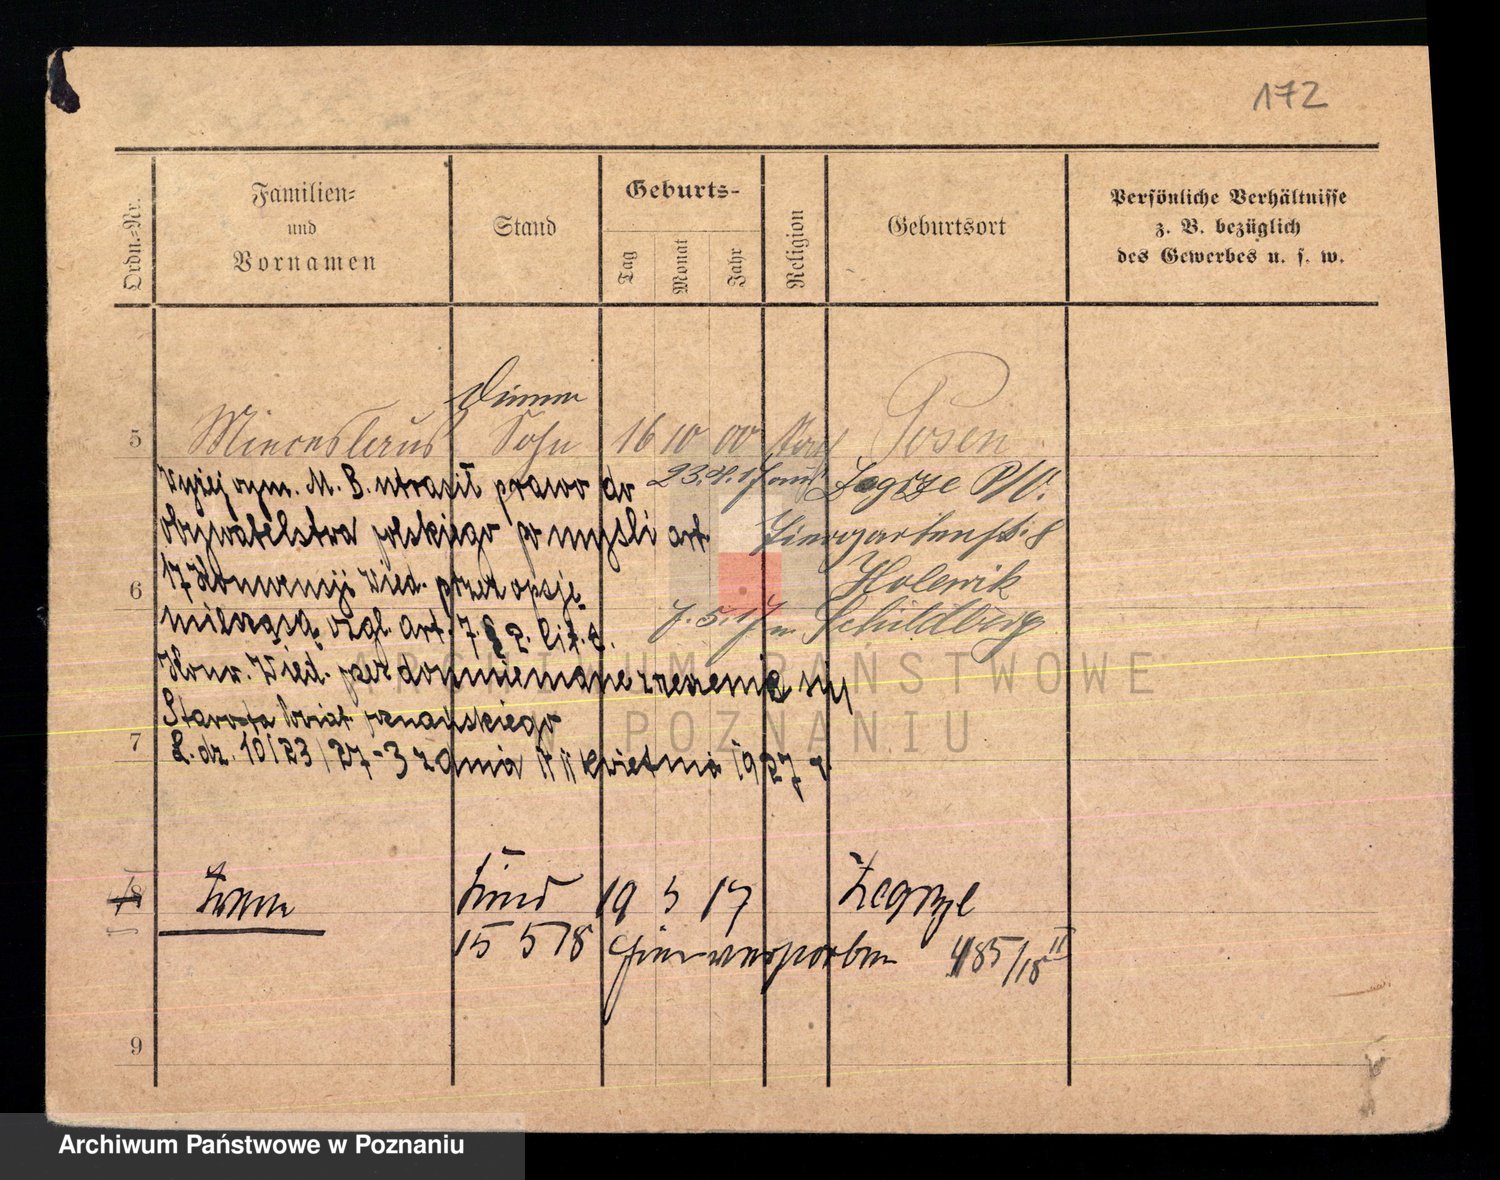 172
Ordn.-Nr.
Familien-
und
Vornamen
Stand
Geburts-
Tag
Monat
Jahr
Religion
Geburtsort
Persönliche Verhältnisse
z. B. bezüglich
des Gewerbes u. s. w.
5 Mieceslaus Sohn 16 10 00 Posen
Wyżej wym. M. B. utracił prawo do
23.4.17 aus Zegrze P/W.
obywatelstwa polskiego po myśli art.
Tiergartenstr. 8
17 Konwencji Wied. przez opcję
Holewik
6
7.5.17 n. Schildberg
względ. art. 7. § 2. lit. c.
Konw. Wied. przez domniemane zrzeczenie się
Starosta Powiat. poznańskiego
7
L. dz. 10/23/27-3 z dnia kwietnia 1927 r.
Kind 19 5 17 Zegrze
15 5 18 hier verstorben 485/18 II
9
ARCHIWUM PAŃSTWOWE
W POZNANIU
Archiwum Państwowe w Poznaniu